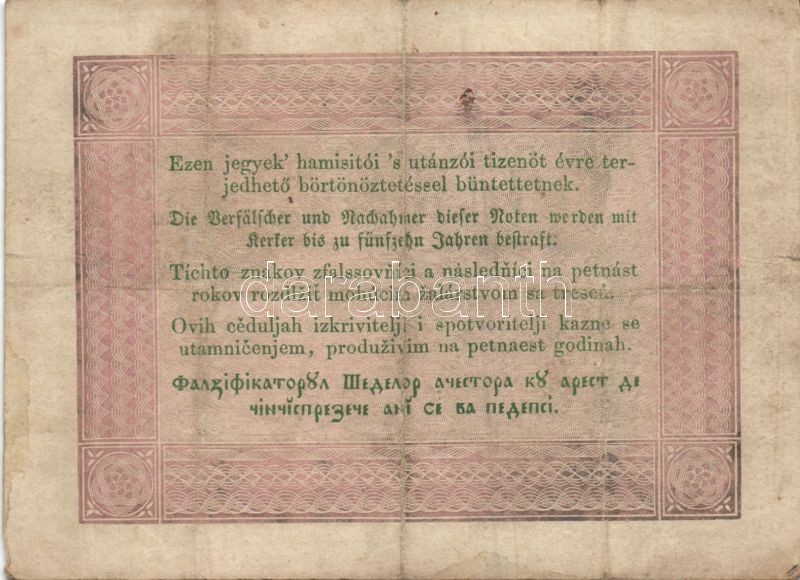 Ezen jegyek' hamisitói 's utánzói tizenöt évre ter-
jedhető börtönöztetéssel büntettetnek.
Die Verfälscher und Nachahmer dieser Noten werden mit
Kerker bis zu fünfzehn Jahren bestraft.
Tíchto znakov zfalssovňíci a následňíci na petnást
rokov rozdlžiť mohúcím žalárstvom sa trescú.
darabanth
Ovih cěduljah izkrivitelji i spotvoritelji kazne se
utamničenjem, produživim na petnaest godinah.
Фалзіфікаторꙋл Шеделор ачестора кꙋ арест де
чінчїспрезече анї се ва педепсі.